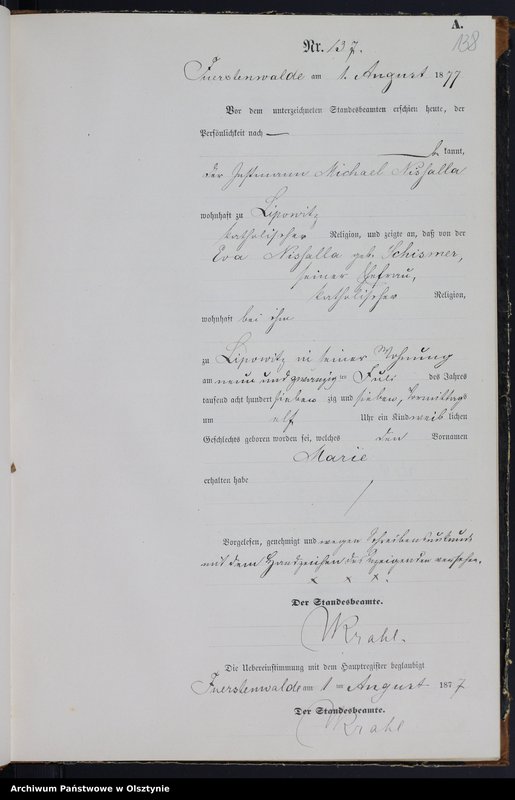 A.
138
Nr. 137.
Fuerstenwalde am 1. August 1877
Vor dem unterzeichneten Standesbeamten erschien heute, der
Persönlichkeit nach
be kannt,
der Instmann Michael Nishalla
wohnhaft zu Lipowitz
katholischer Religion, und zeigte an, daß von der
Eva Nishalla geb. Schismer,
seiner Ehefrau,
katholischer Religion,
wohnhaft bei ihm
zu Lipowitz in seiner Wohnung
am neun und zwanzig ten Juli des Jahres
tausend acht hundert sieben zig und sieben, Vormittags
um elf Uhr ein Kind weib lichen
Geschlechts geboren worden sei, welches den Vornamen
Marie
erhalten habe
Vorgelesen, genehmigt und wegen Schreibensunkunde
mit dem Handzeichen des Anzeigenden versehen.
x x x.
Der Standesbeamte.
Krahl.
Die Uebereinstimmung mit dem Hauptregister beglaubigt
Fuerstenwalde am 1 ten August 1877
Der Standesbeamte.
Krahl
Archiwum Państwowe w Olsztynie